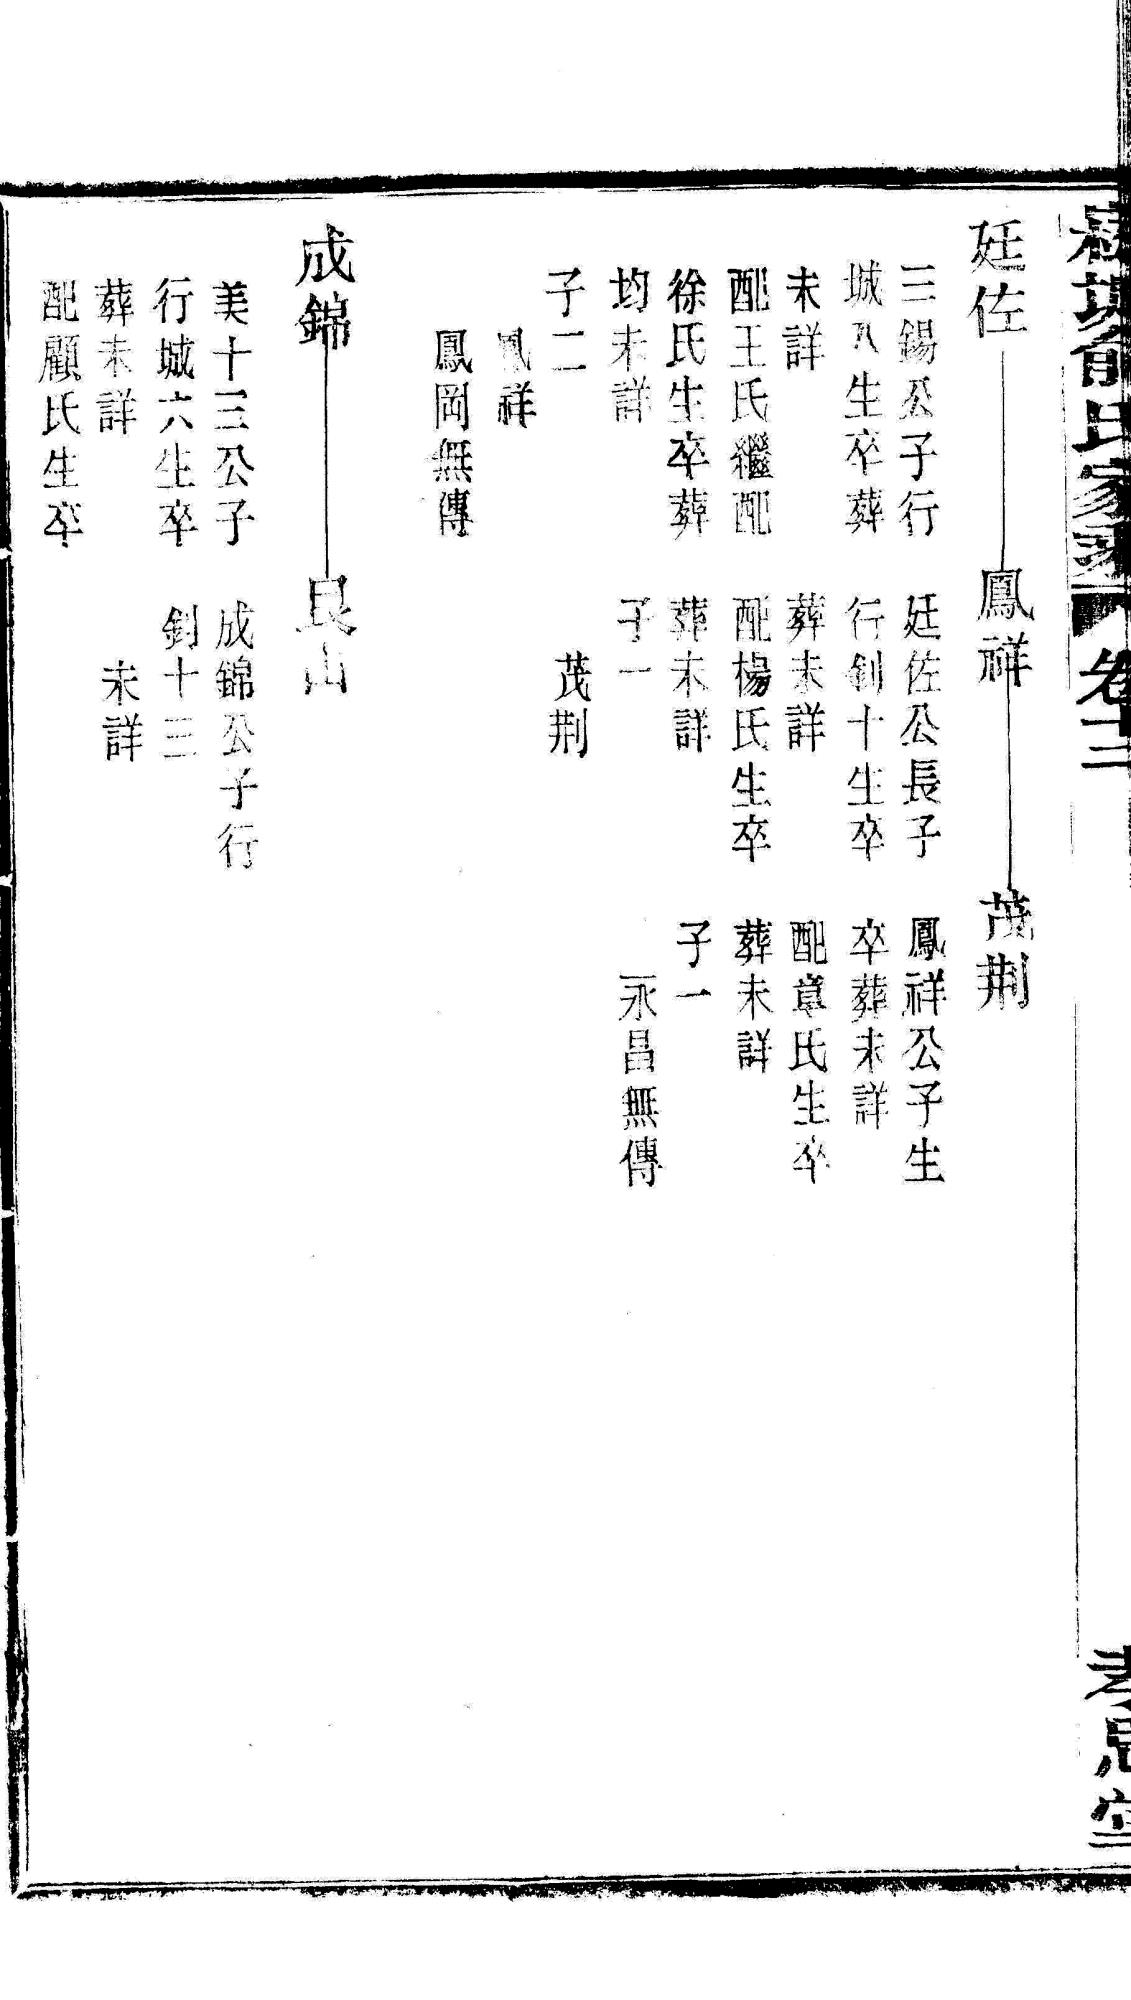 俞氏家乘 卷十三
孝思堂
廷佐
三錫公子行
城八生卒葬
未詳
配王氏繼配
徐氏生卒葬
均未詳
子二
鳳祥
鳳岡無傳
鳳祥
廷佐公長子
行釗十生卒
葬未詳
配楊氏生卒
葬未詳
子一
茂荆
茂荆
鳳祥公子生
卒葬未詳
配章氏生卒
葬未詳
子一
永昌無傳
成錦
美十三公子
行城六生卒
葬未詳
配顧氏生卒
艮山
成錦公子行
釗十三
未詳